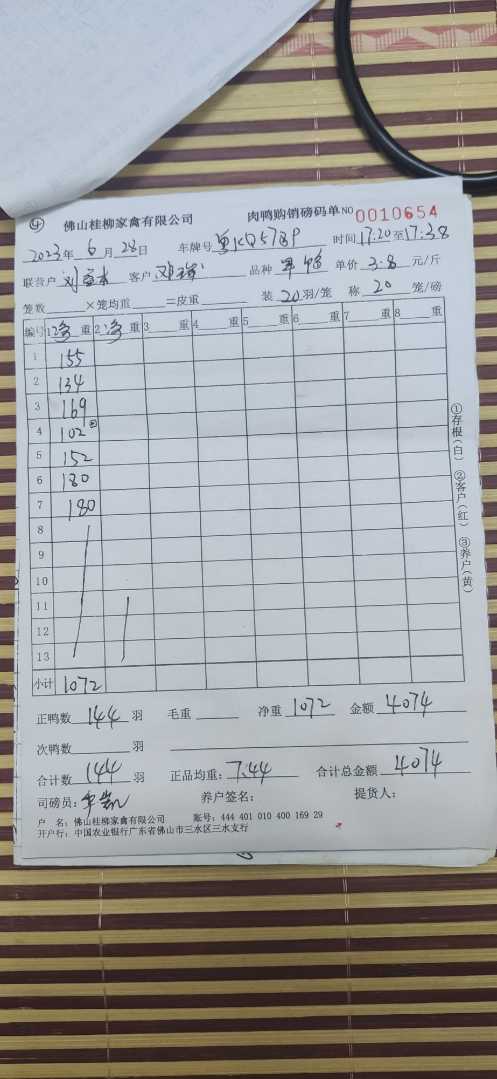 ④ 佛山桂柳家禽有限公司 肉鸭购销磅码单 NO 0010654
2023年 6 月 28日 车牌号 粤 时间 17:20 至 17:38
联营户 客户 品种 单价 3.8 元/斤
笼数 ×笼均重 =皮重 装 20 羽/笼 称 20 笼/磅
编号 1净 重 2净 重 3 重 4 重 5 重 6 重 7 重 8 重
1 155
2 134
3 169
4 102
5 152
6 180
7 180
8
9
10
11
12
13
小计 1072
正鸭数 144 羽 毛重 净重 1072 金额 4074
次鸭数 羽
合计数 144 羽 正品均重: 7.44 合计总金额 4074
司磅员: 养户签名: 提货人:
户 名: 佛山桂柳家禽有限公司 账号: 444 401 010 400 169 29
开户行: 中国农业银行广东省佛山市三水区三水支行
①存根(白) ②客户(红) ③养户(黄)